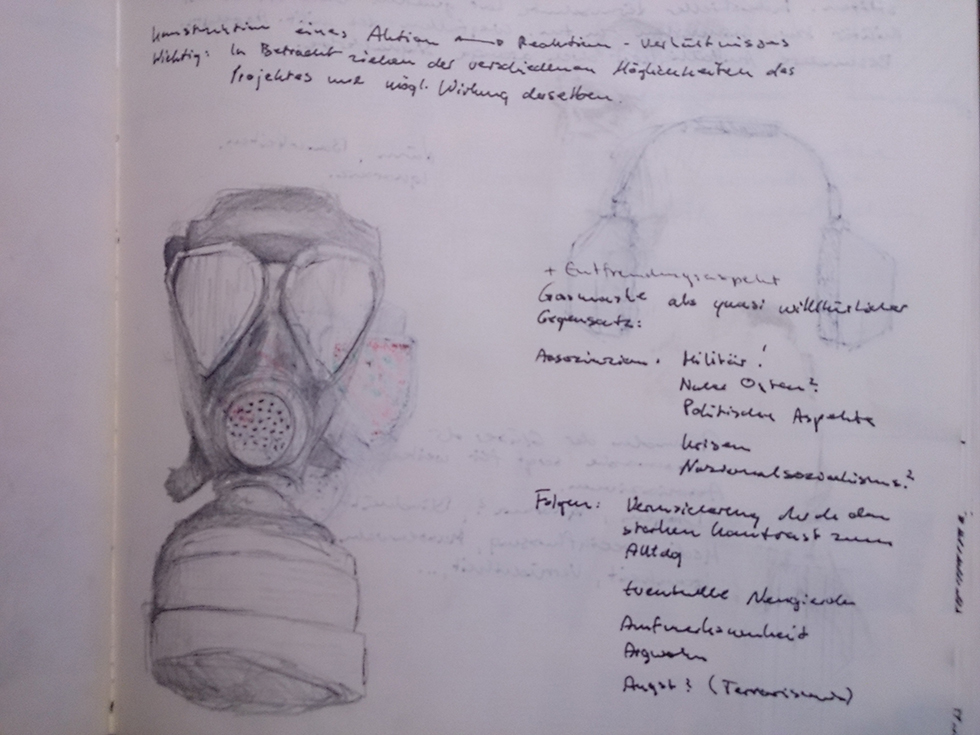 Konstruktion eines Aktion und Reaktion - verhältnisses
Wichtig: In Betracht ziehen der verschiedenen Möglichkeiten des
Projektes und mögl. Wirkung desselben.
+ Entfremdungsaspekt
Gasmaske als quasi willkürlicher
Gegensatz:
Assoziation: Militär!
Naher Osten?
Politische Aspekte
Krisen
Nazionalsozialismus?
Folgen: Verunsicherung durch den
starken Kontrast zum
Alltag
Eventuelle Neugierde
Aufmerksamkeit
Argwohn
Angst? (Terrorismus)